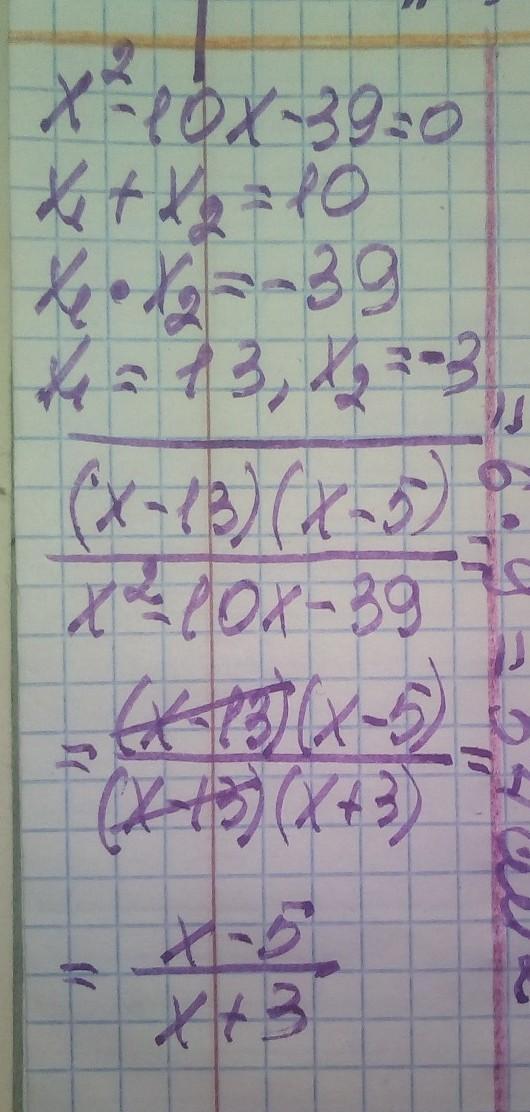 x² - 10x - 39 = 0
x₁ + x₂ = 10
x₁ • x₂ = -39
x₁ = 13, x₂ = -3
(x - 13)(x - 5)
x² - 10x - 39 =
= (x - 13)(x - 5) =
(x - 13)(x + 3)
= x - 5
x + 3